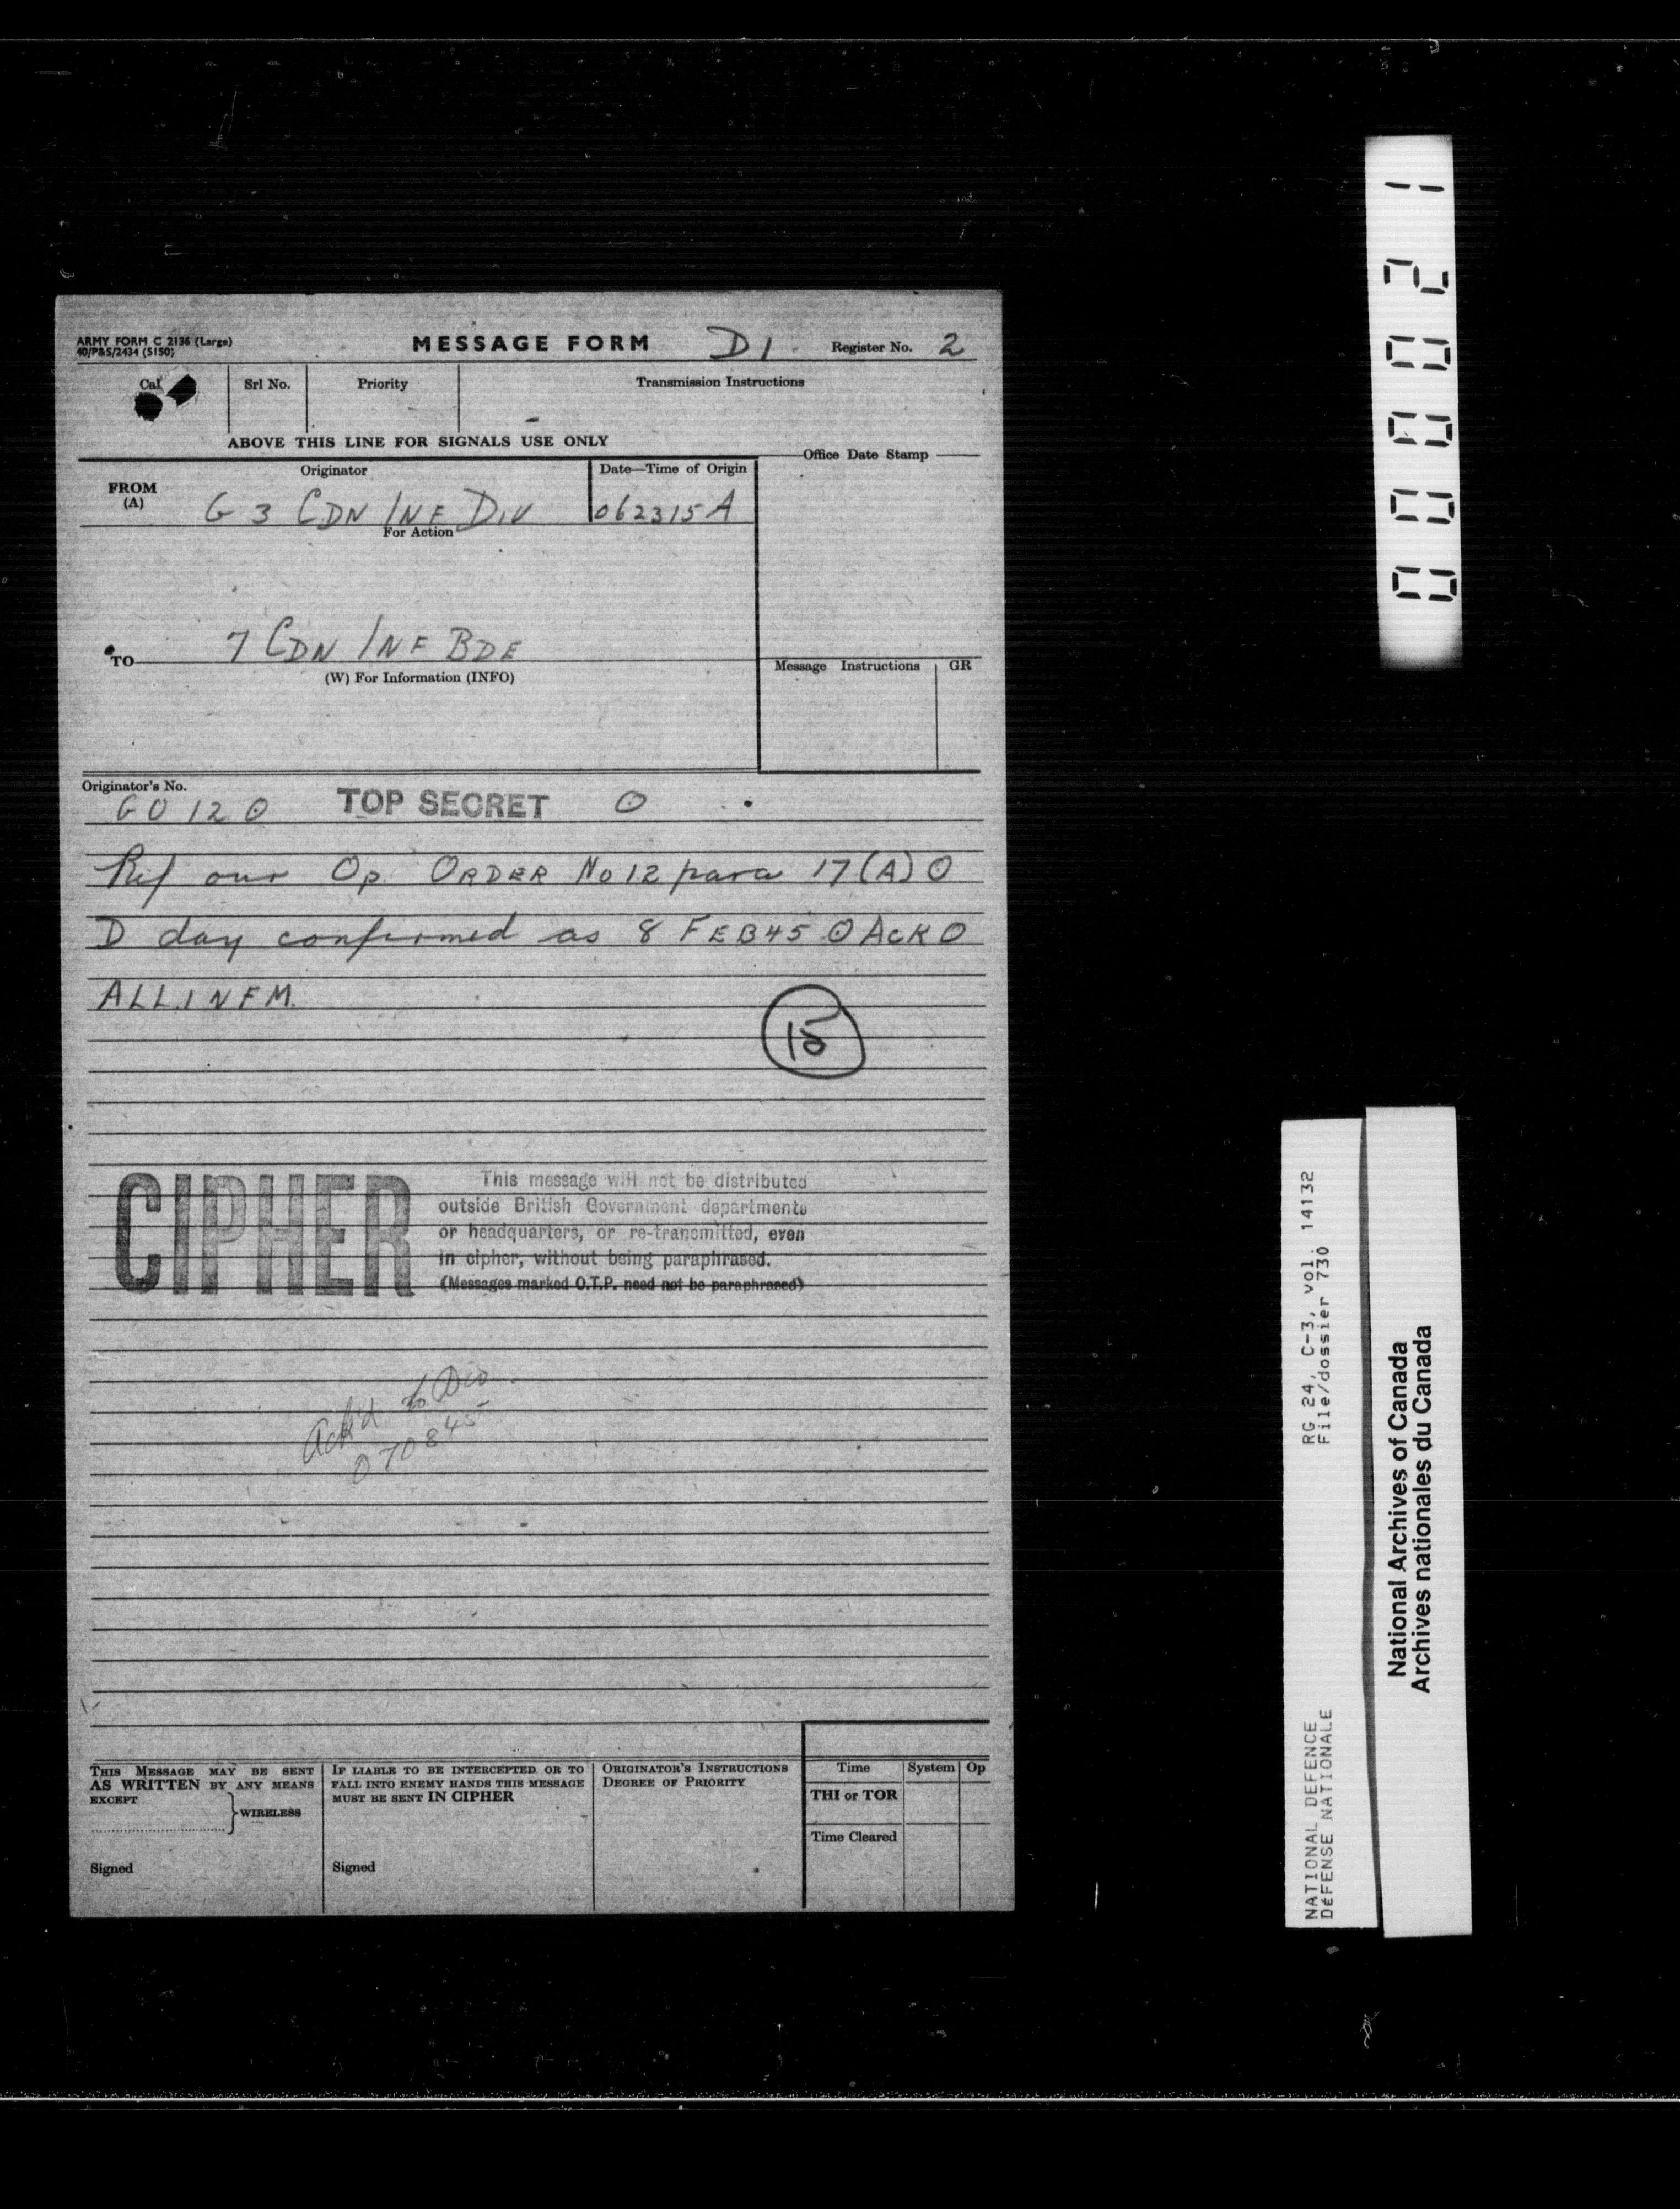 ARMY FORM C 2136 (Large)
40/P&S/2434 (5150)
MESSAGE FORM D1 Register No. 2
Cal Srl No. Priority Transmission Instructions
ABOVE THIS LINE FOR SIGNALS USE ONLY
Office Date Stamp
Originator Date—Time of Origin
FROM
(A)
G 3 CDN INF DIV 062315A
For Action
TO 7 CDN INF BDE
(W) For Information (INFO)
Message Instructions GR
Originator's No.
GO 120 TOP SECRET O
Ref our Op. ORDER No 12 para 17(A) O
D day confirmed as 8 FEB 45 O ACK O
ALL INFM.
15
CIPHER
This message will not be distributed
outside British Government departments
or headquarters, or re-transmitted, even
in cipher, without being paraphrased.
(Messages marked O.T.P. need not be paraphrased)
Ack'd to Div
070845
THIS MESSAGE MAY BE SENT
AS WRITTEN BY ANY MEANS
EXCEPT
WIRELESS
Signed
IF LIABLE TO BE INTERCEPTED OR TO
FALL INTO ENEMY HANDS THIS MESSAGE
MUST BE SENT IN CIPHER
Signed
ORIGINATOR'S INSTRUCTIONS
DEGREE OF PRIORITY
Time System Op
THI or TOR
Time Cleared
000021
NATIONAL DEFENCE RG 24, C-3, vol. 14132
DÉFENSE NATIONALE File/dossier 730
National Archives of Canada
Archives nationales du Canada